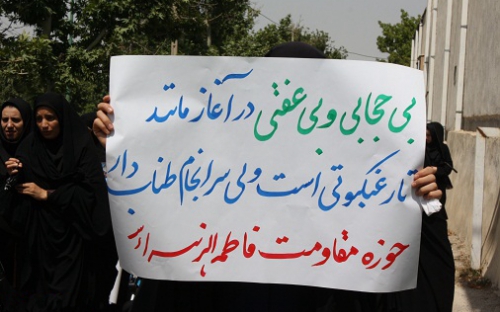 بی حجابی و بی عفتی در آغاز مانند
تار عنکبوتی است ولی سرانجام طناب دار
حوزه مقاومت فاطمه الزهرا